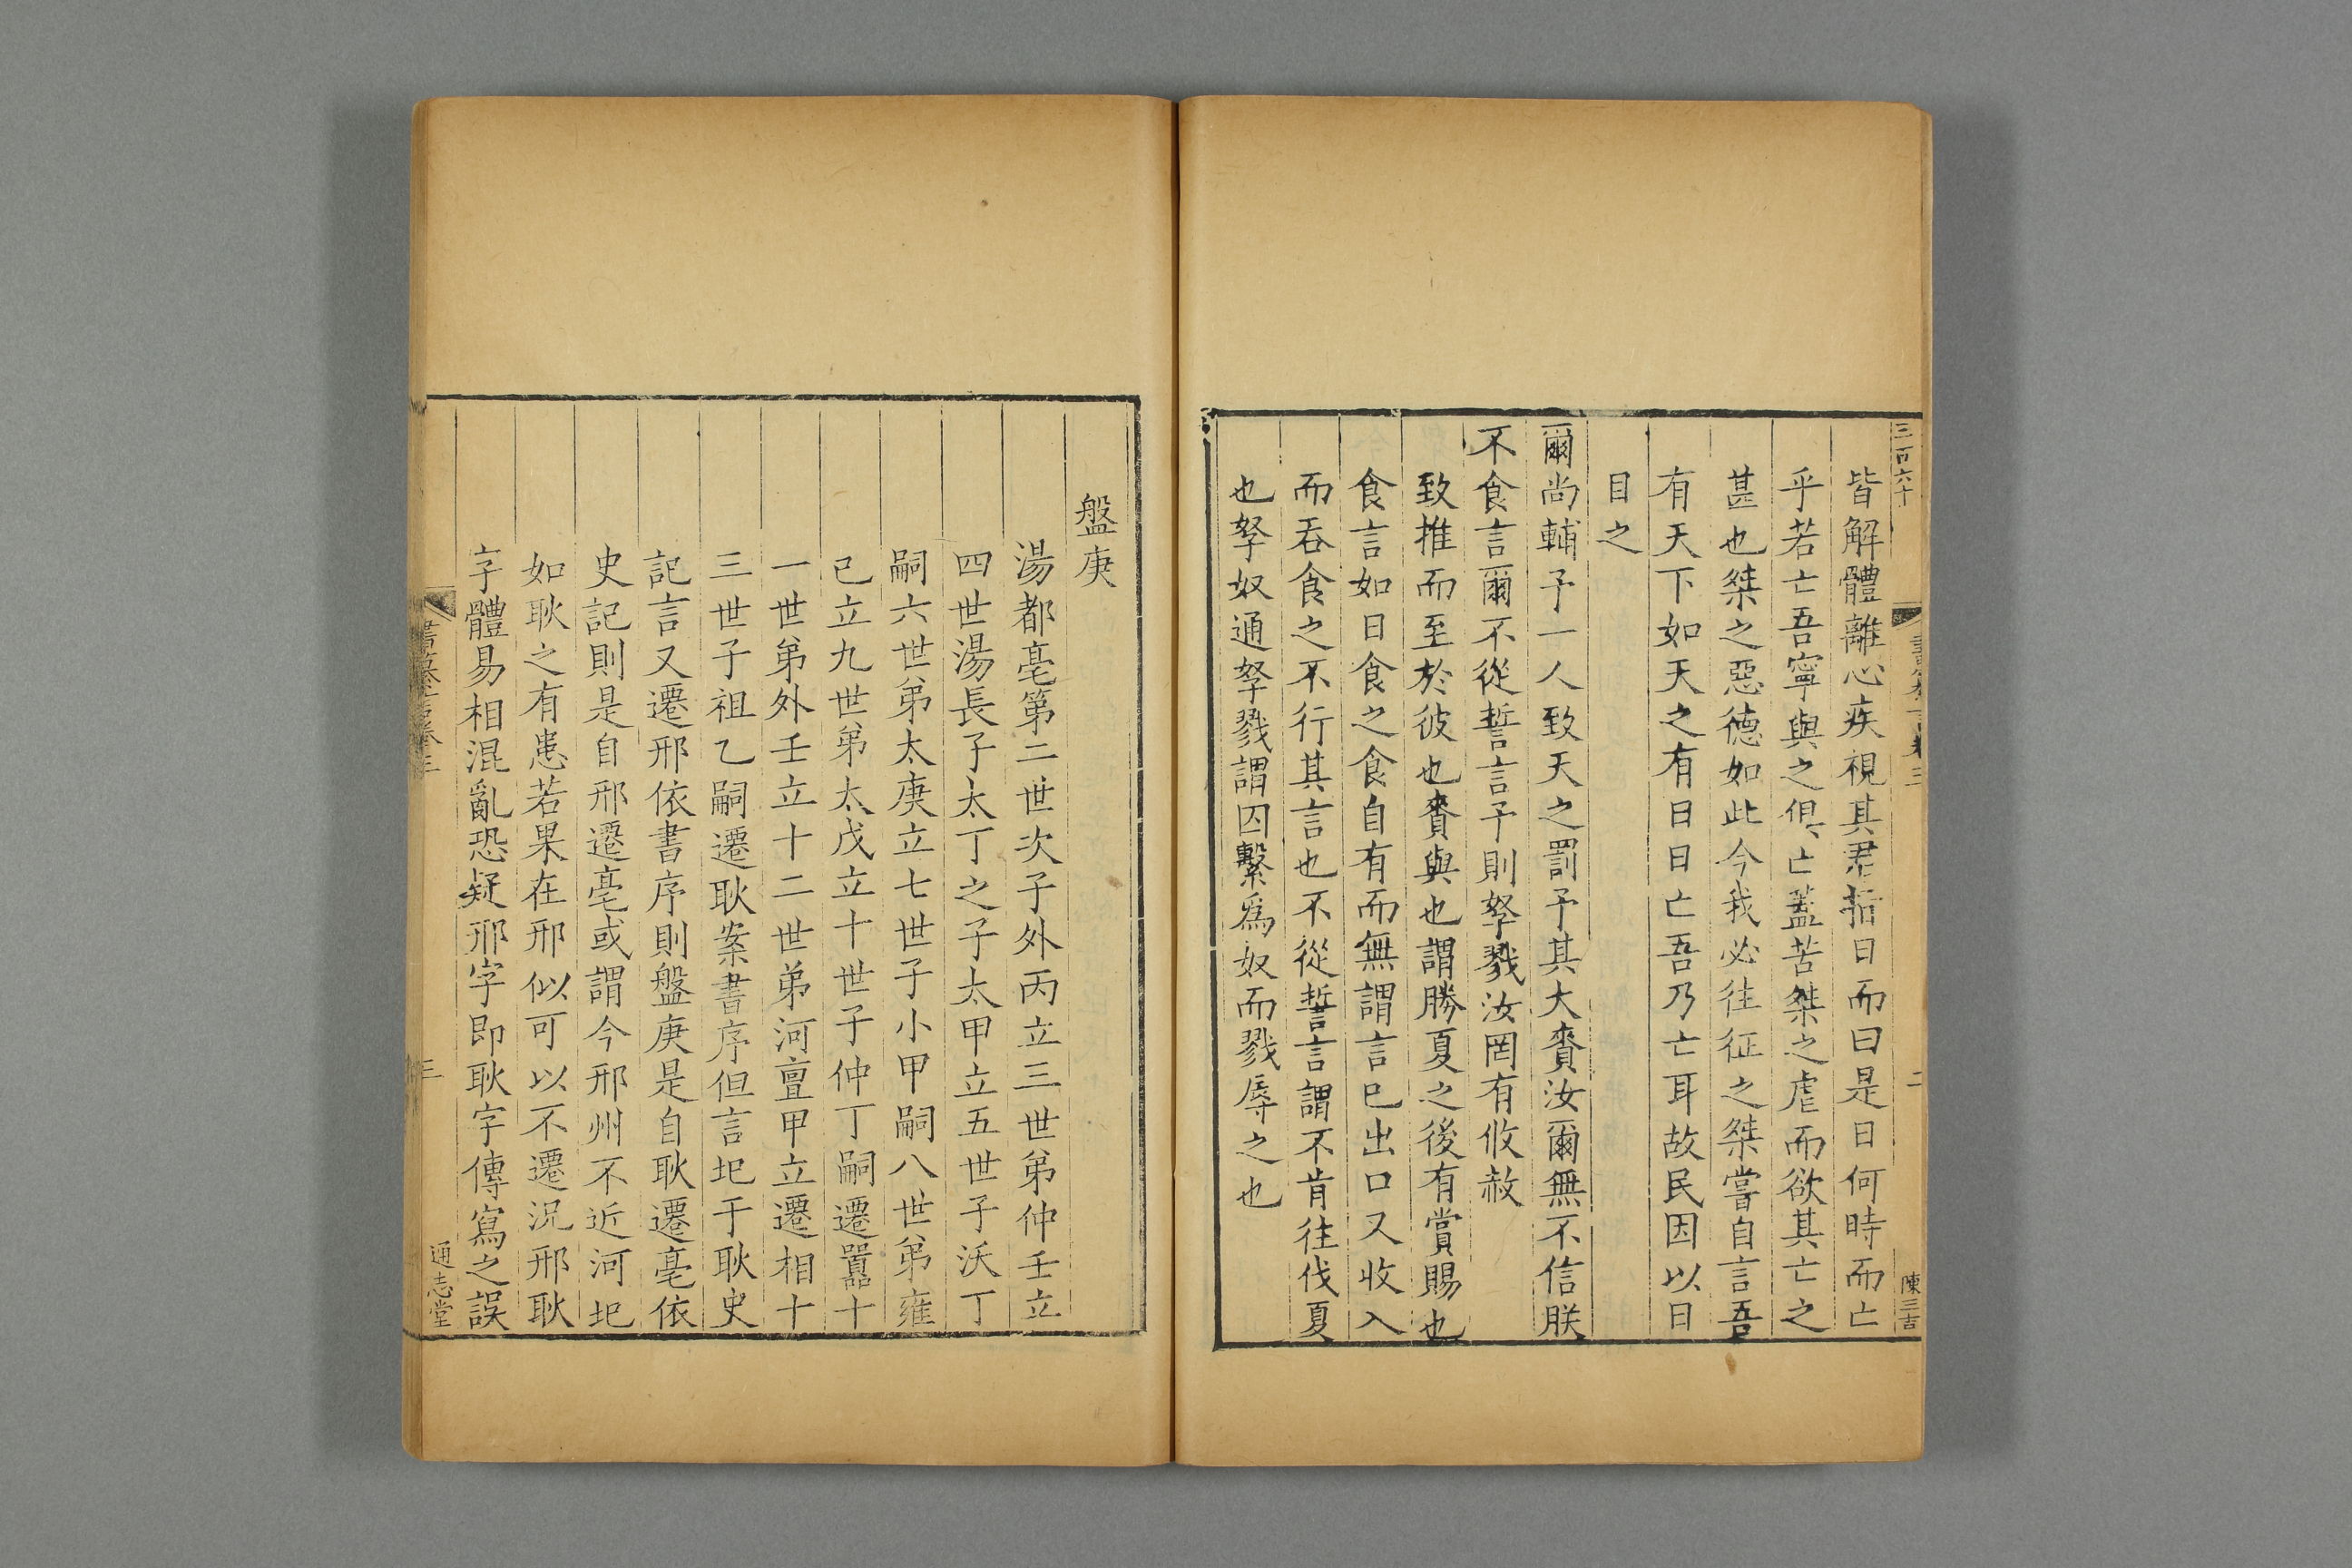 三百六十
二
陳三吉
皆解體離心疾視其君指日而曰是日何時而亡
乎若亡吾寧與之俱亡蓋苦桀之虐而欲其亡之
甚也桀之惡德如此今我必往征之桀嘗自言吾
有天下如天之有日日亡吾乃亡耳故民因以日
目之
爾尚輔予一人致天之罰予其大賚汝爾無不信朕
不食言爾不從誓言予則孥戮汝罔有攸赦
致推而至於彼也賚與也謂勝夏之後有賞賜也
食言如日食之食自有而無謂言已出口又收入
而吞食之不行其言也不從誓言謂不肯往伐夏
也孥奴通孥戮謂囚繫爲奴而戮辱之也
盤庚
湯都亳第二世次子外丙立三世弟仲壬立
四世湯長子太丁之子太甲立五世子沃丁
嗣六世弟太庚立七世子小甲嗣八世弟雍
己立九世弟太戊立十世子仲丁嗣遷囂十
一世弟外壬立十二世弟河亶甲立遷相十
三世子祖乙嗣遷耿案書序但言圯于耿史
記言又遷邢依書序則盤庚是自耿遷亳依
史記則是自邢遷亳或謂今邢州不近河圯
如耿之有患若果在邢似可以不遷況邢耿
字體易相混亂恐疑邢字即耿字傳寫之誤
三
通志堂